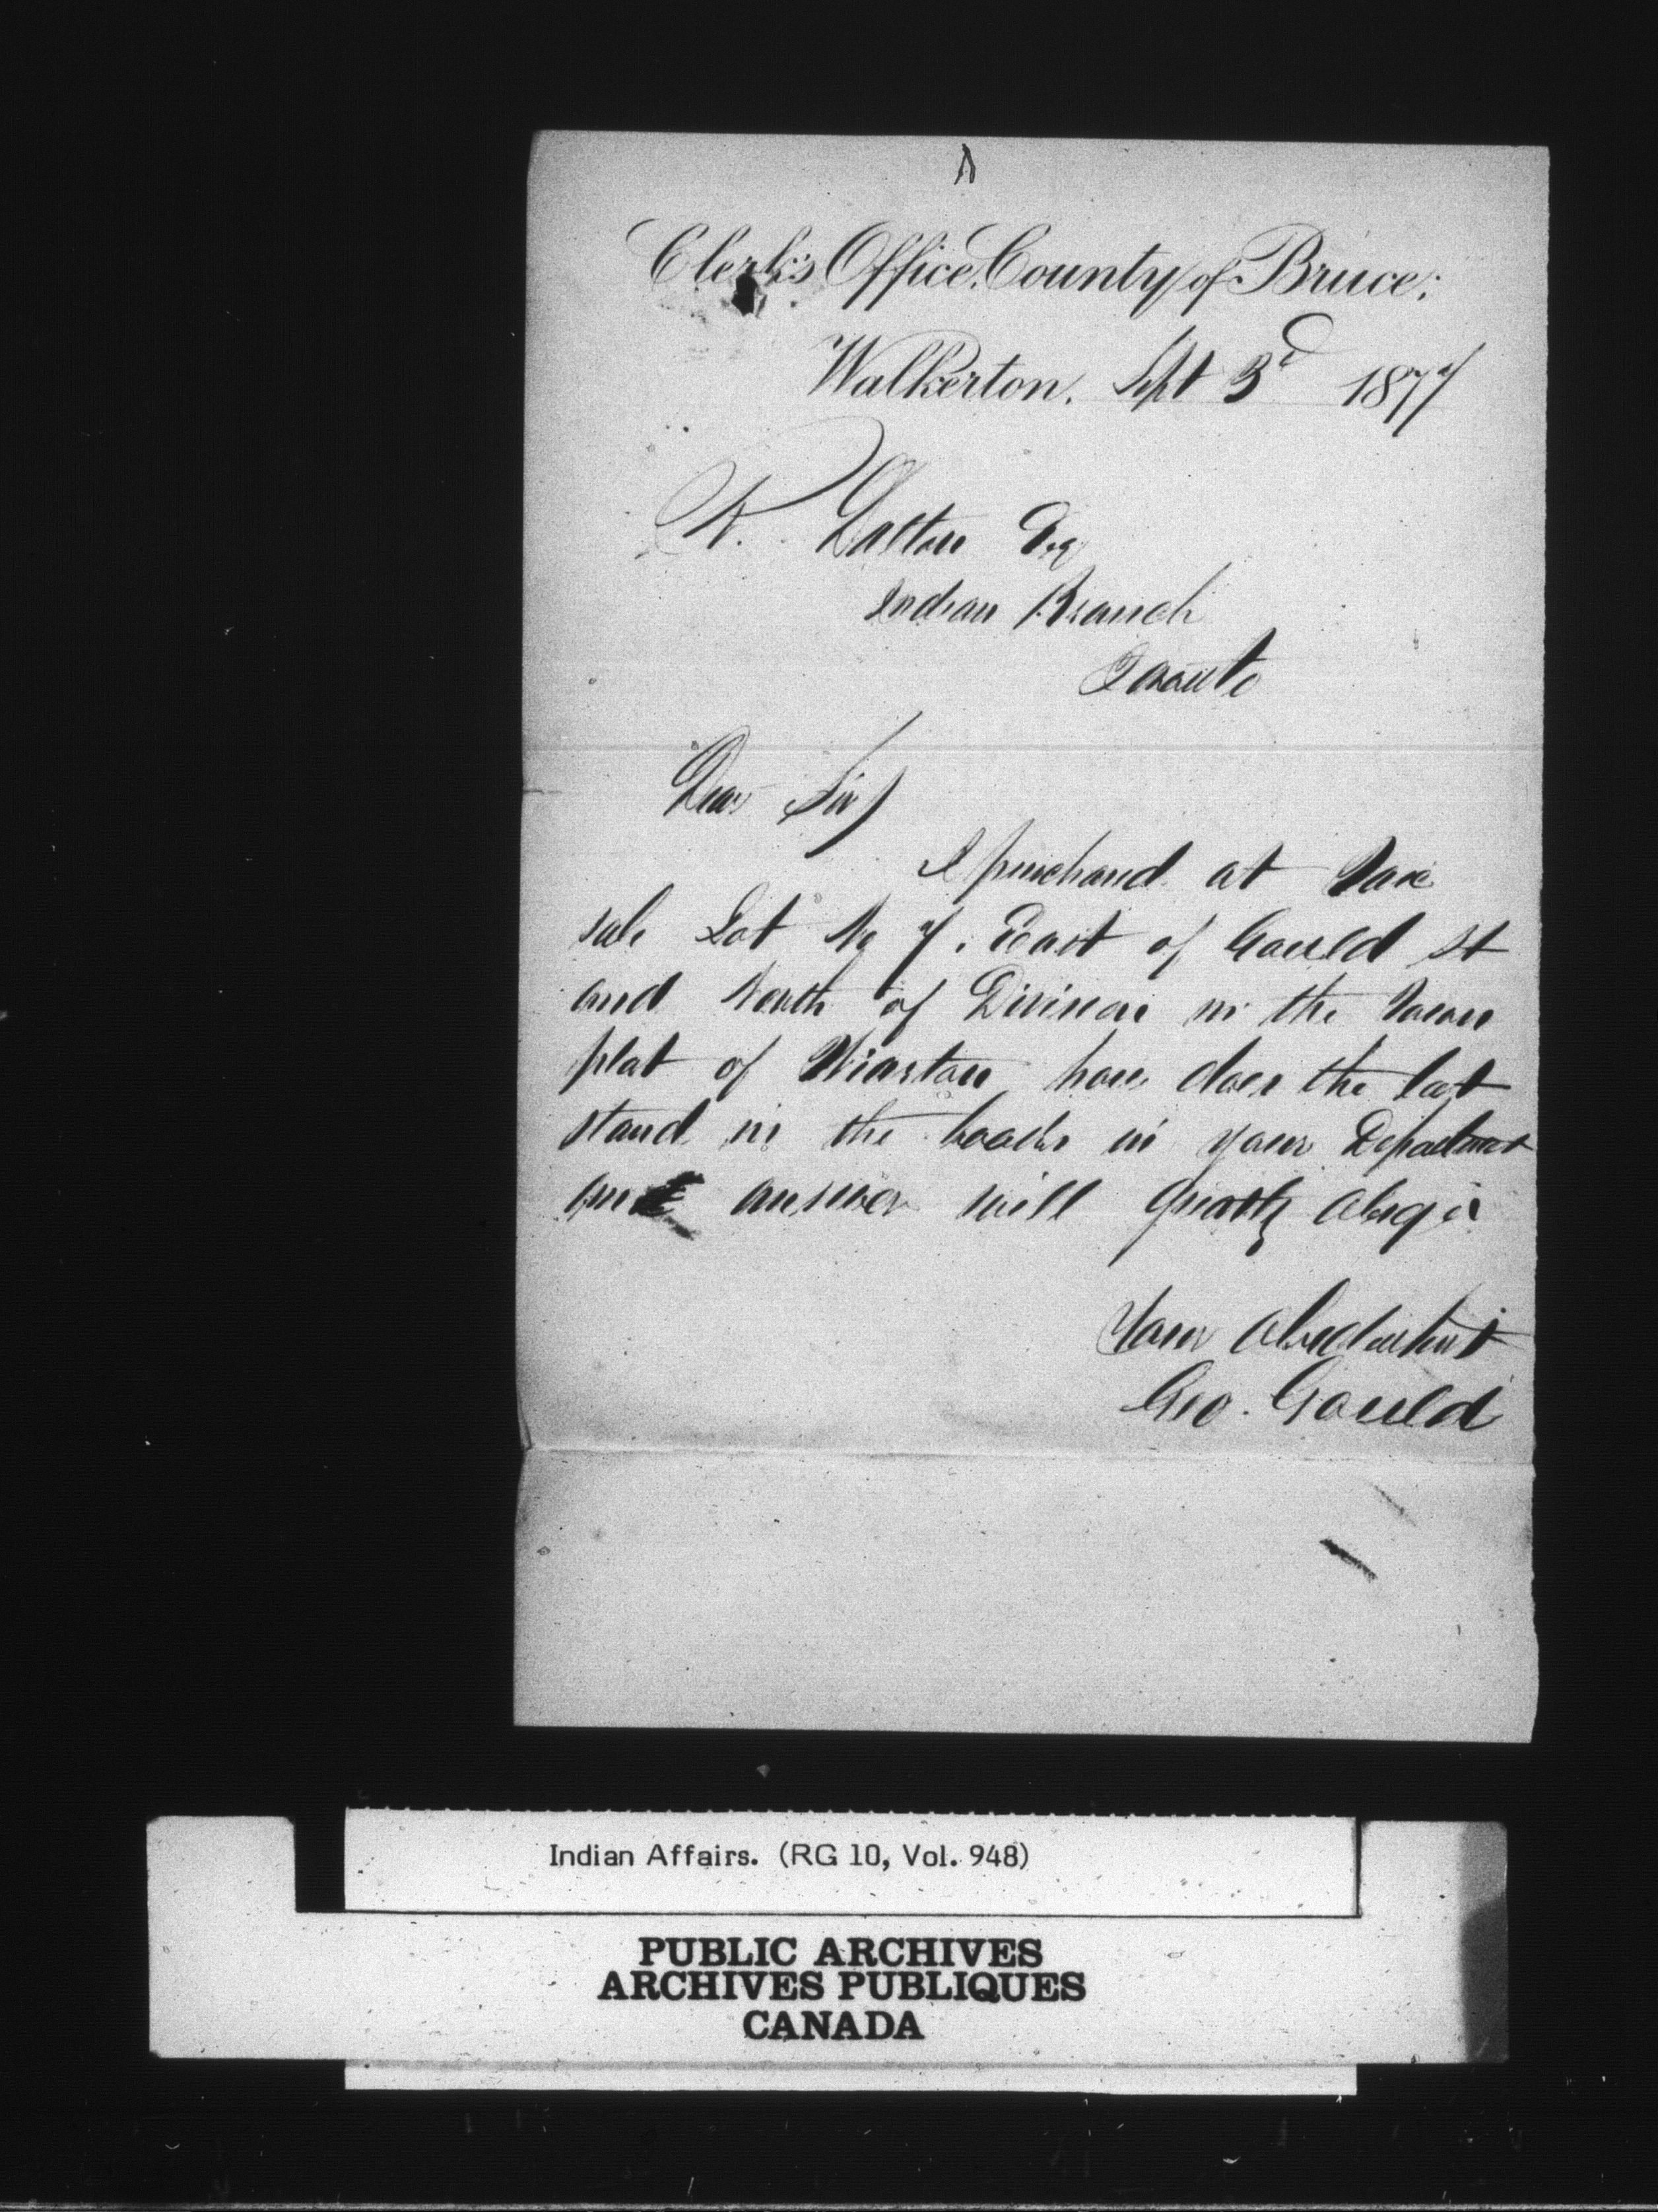 Clerk's Office, County of Bruce;
Walkerton, Sept 3d 1877
Dalton Esq
Indian Branch
Toronto
Dear Sir
I purchased at Tax
sale Lot No 7. East of Gould St
and North of Division in the Town
plat of Wiarton how does the lot
stand in the books in your Department
an answer will greatly oblige
Your obedient
Geo. Gould
Indian Affairs. (RG 10, Vol. 948)
PUBLIC ARCHIVES
ARCHIVES PUBLIQUES
CANADA